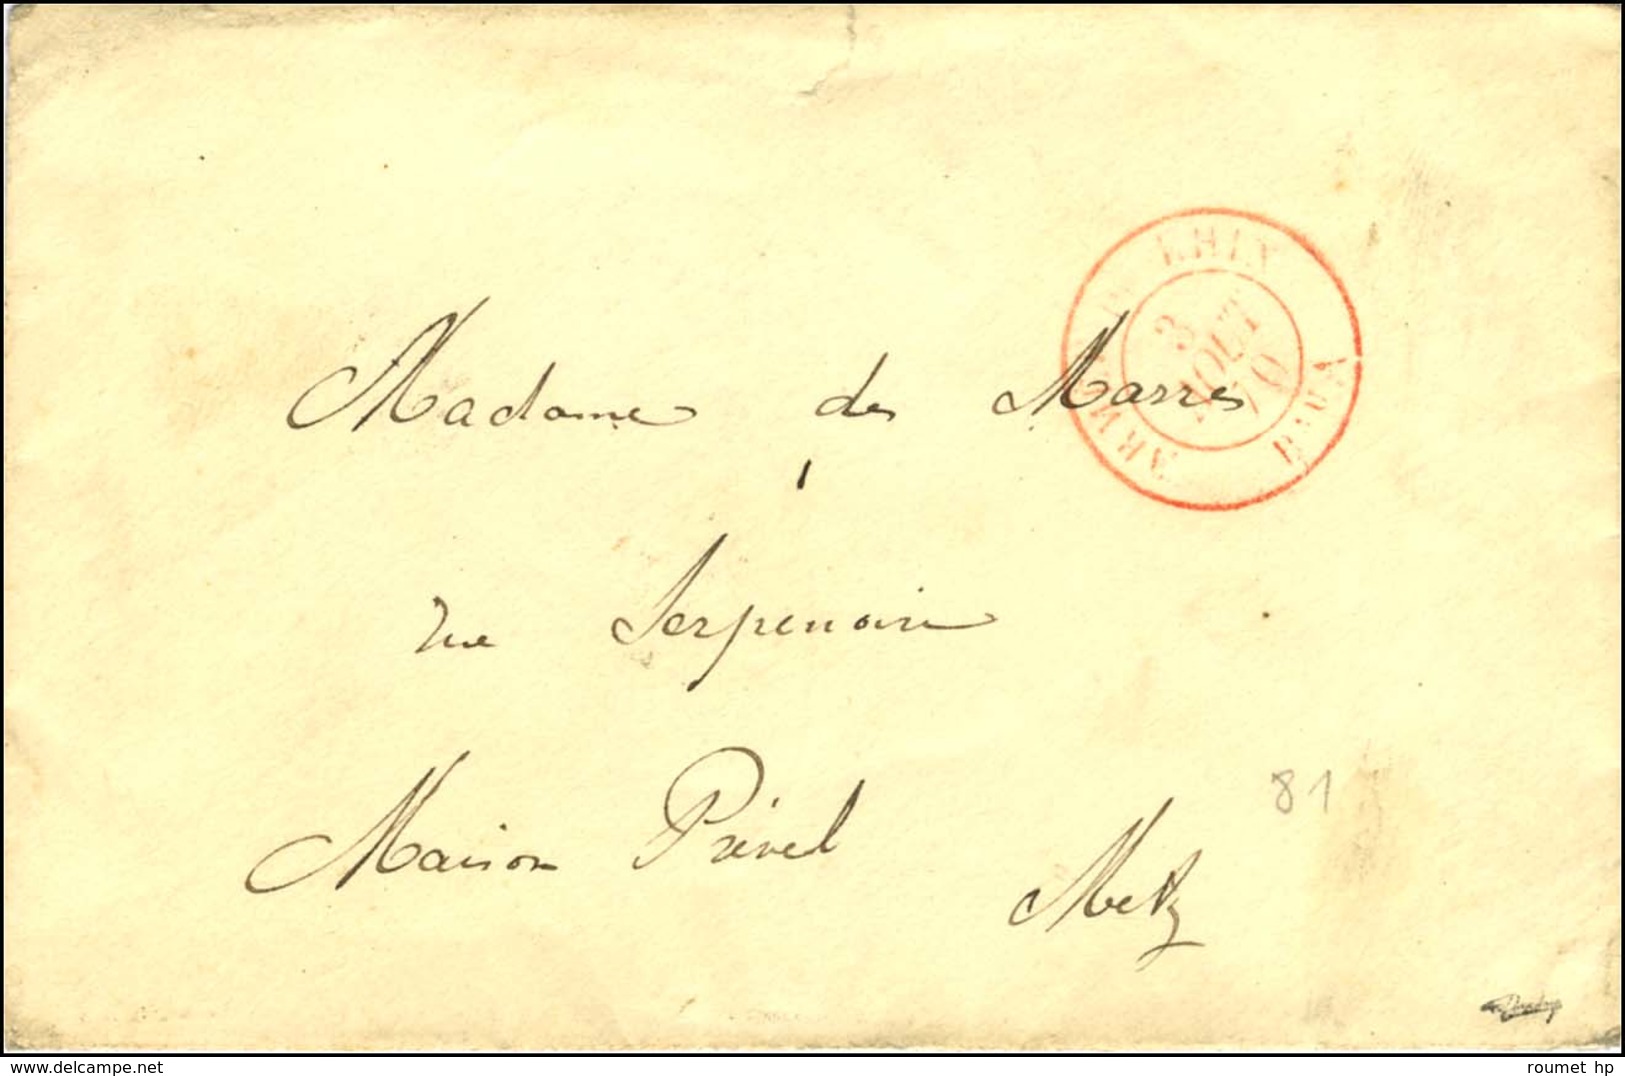 ARMÉE DU RHIN
3
AOUT
70
Madame des Marres
rue Serpenoire
Maison Prével
Metz
81
delcampe.net
roumet hp